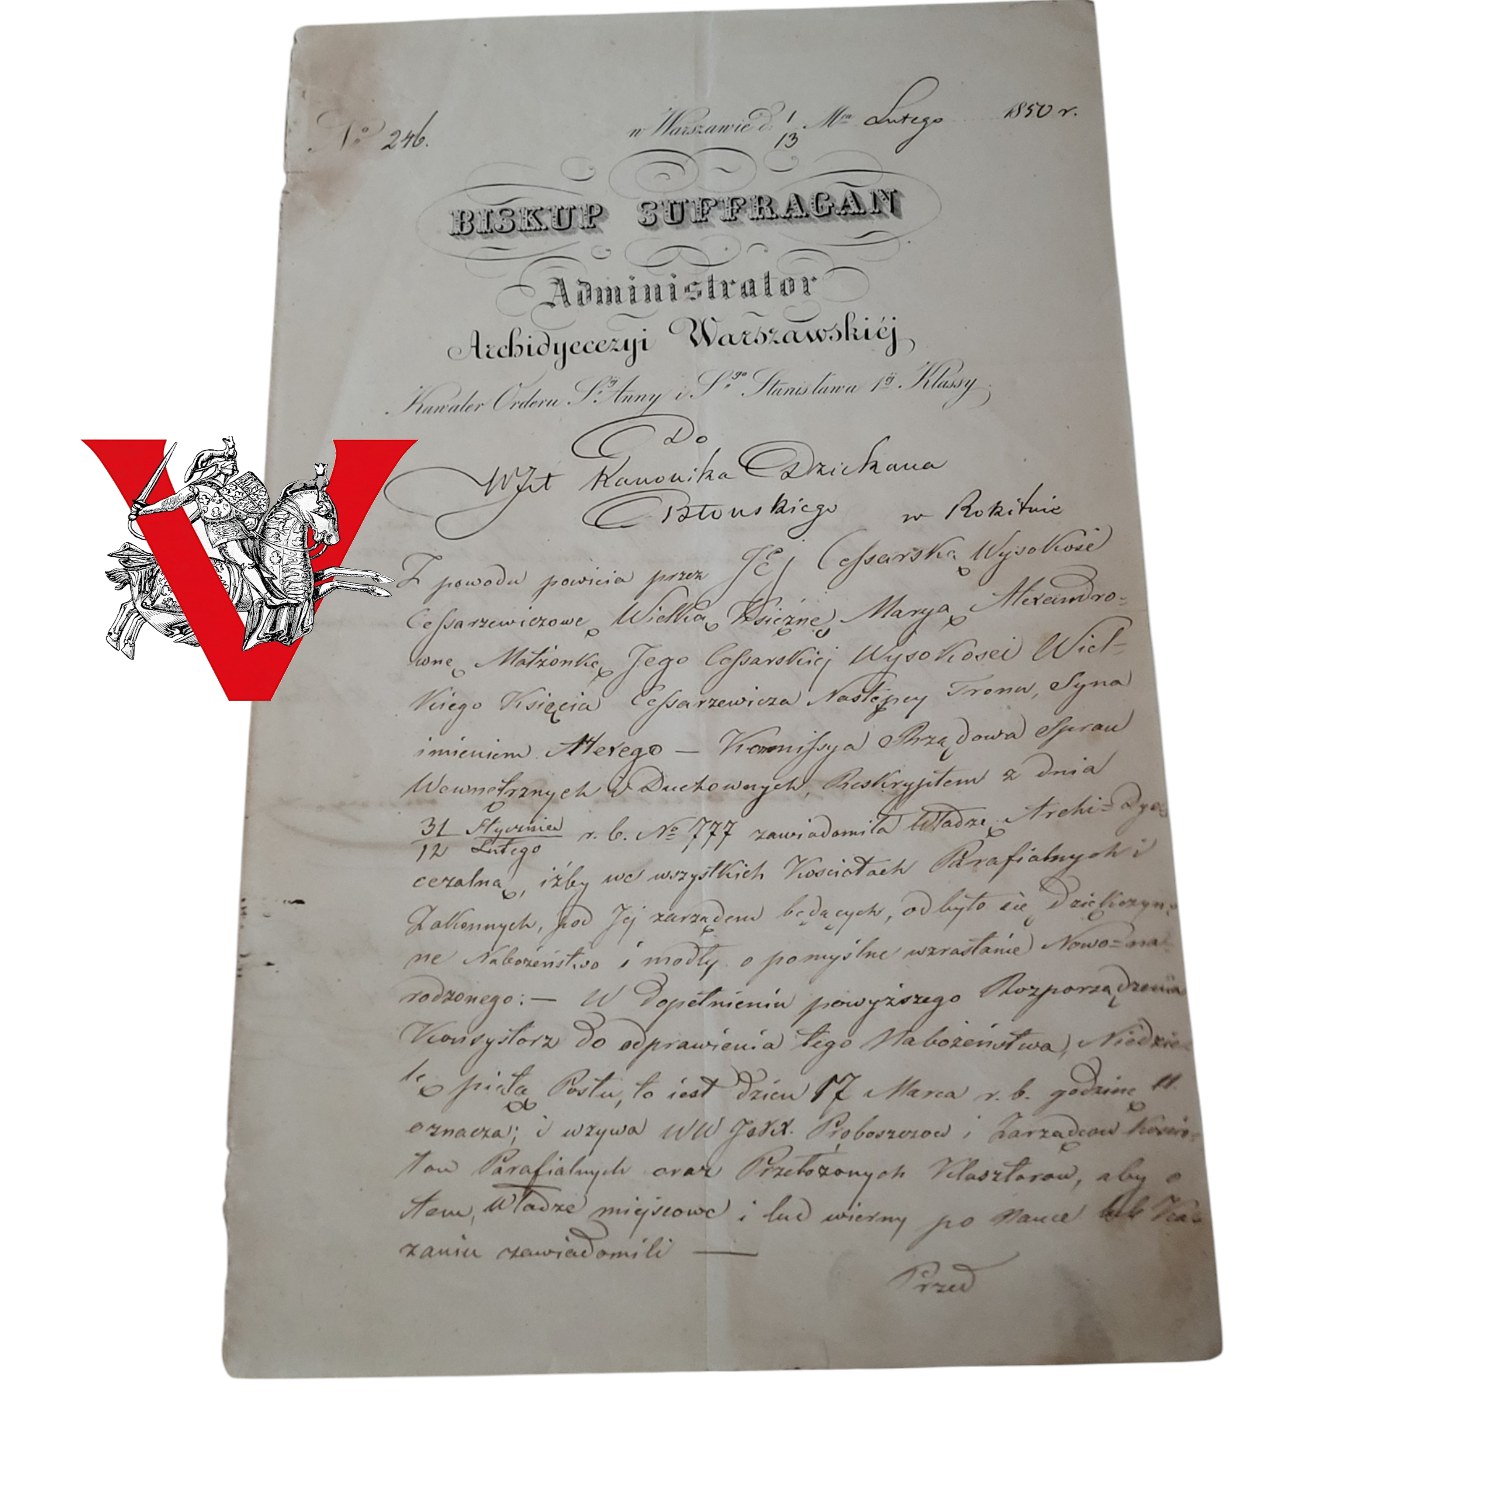 No 246.
w Warszawie d. 1/13 Mca Lutego 1850 r.
BISKUP SUFFRAGAN
Administrator
Archidyecezyi Warszawskiéj
Kawaler Orderu Sej Anny i Sgo Stanisława 1éj Klassy
Do
WJX Kanonika Dziekana
Błońskiego w Rokitnie
Z powodu powicia przez JEJ Cessarską Wysokość
Cessarzewiczowę Wielką Księżnę Maryą Alexandro=
wnę Małżonkę Jego Cessarskiej Wysokości Wiel=
kiego Księcia Cessarzewicza Następcy Tronu, Syna
imieniem Alexego — Kommissya Rządowa Spraw
Wewnętrznych i Duchownych, Reskryptem z dnia
31 Stycznia/12 Lutego r. b. No 777 zawiadomiła Władzę Archi=Dye=
cezalną, iżby we wszystkich Kościołach Parafialnych i
Zakonnych, pod Jej zarządem będących, odbyło się dziękczyn=
ne Nabożeństwo i modły o pomyślne wzrastanie Nowo=na=
rodzonego: — W dopełnieniu powyższego Rozporządzenia
Konsystorz do odprawienia tego Nabożeństwa, Niedzie=
lę piątą Postu, to iest dzień 17 Marca r. b. godzinę 11.
oznacza; i wzywa WW JXX. Proboszczow i Zarządcow Koscio=
łow Parafialnych oraz Przełożonych Klasztorow, aby o
tem, Władze miejscowe i lud wierny po Nauce lub Ka=
zaniu zawiadomili —
Przed
V